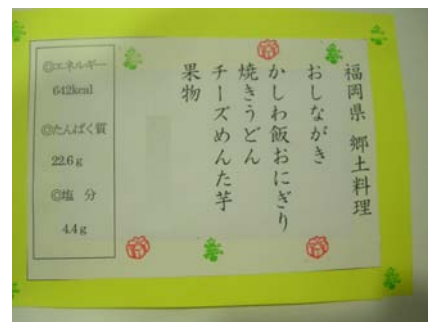 福岡県 郷土料理
おしながき
かしわ飯おにぎり
焼きうどん
チーズめんた芋
果物
◎エネルギー
642kcal
◎たんぱく質
22.6g
◎塩 分
4.4g